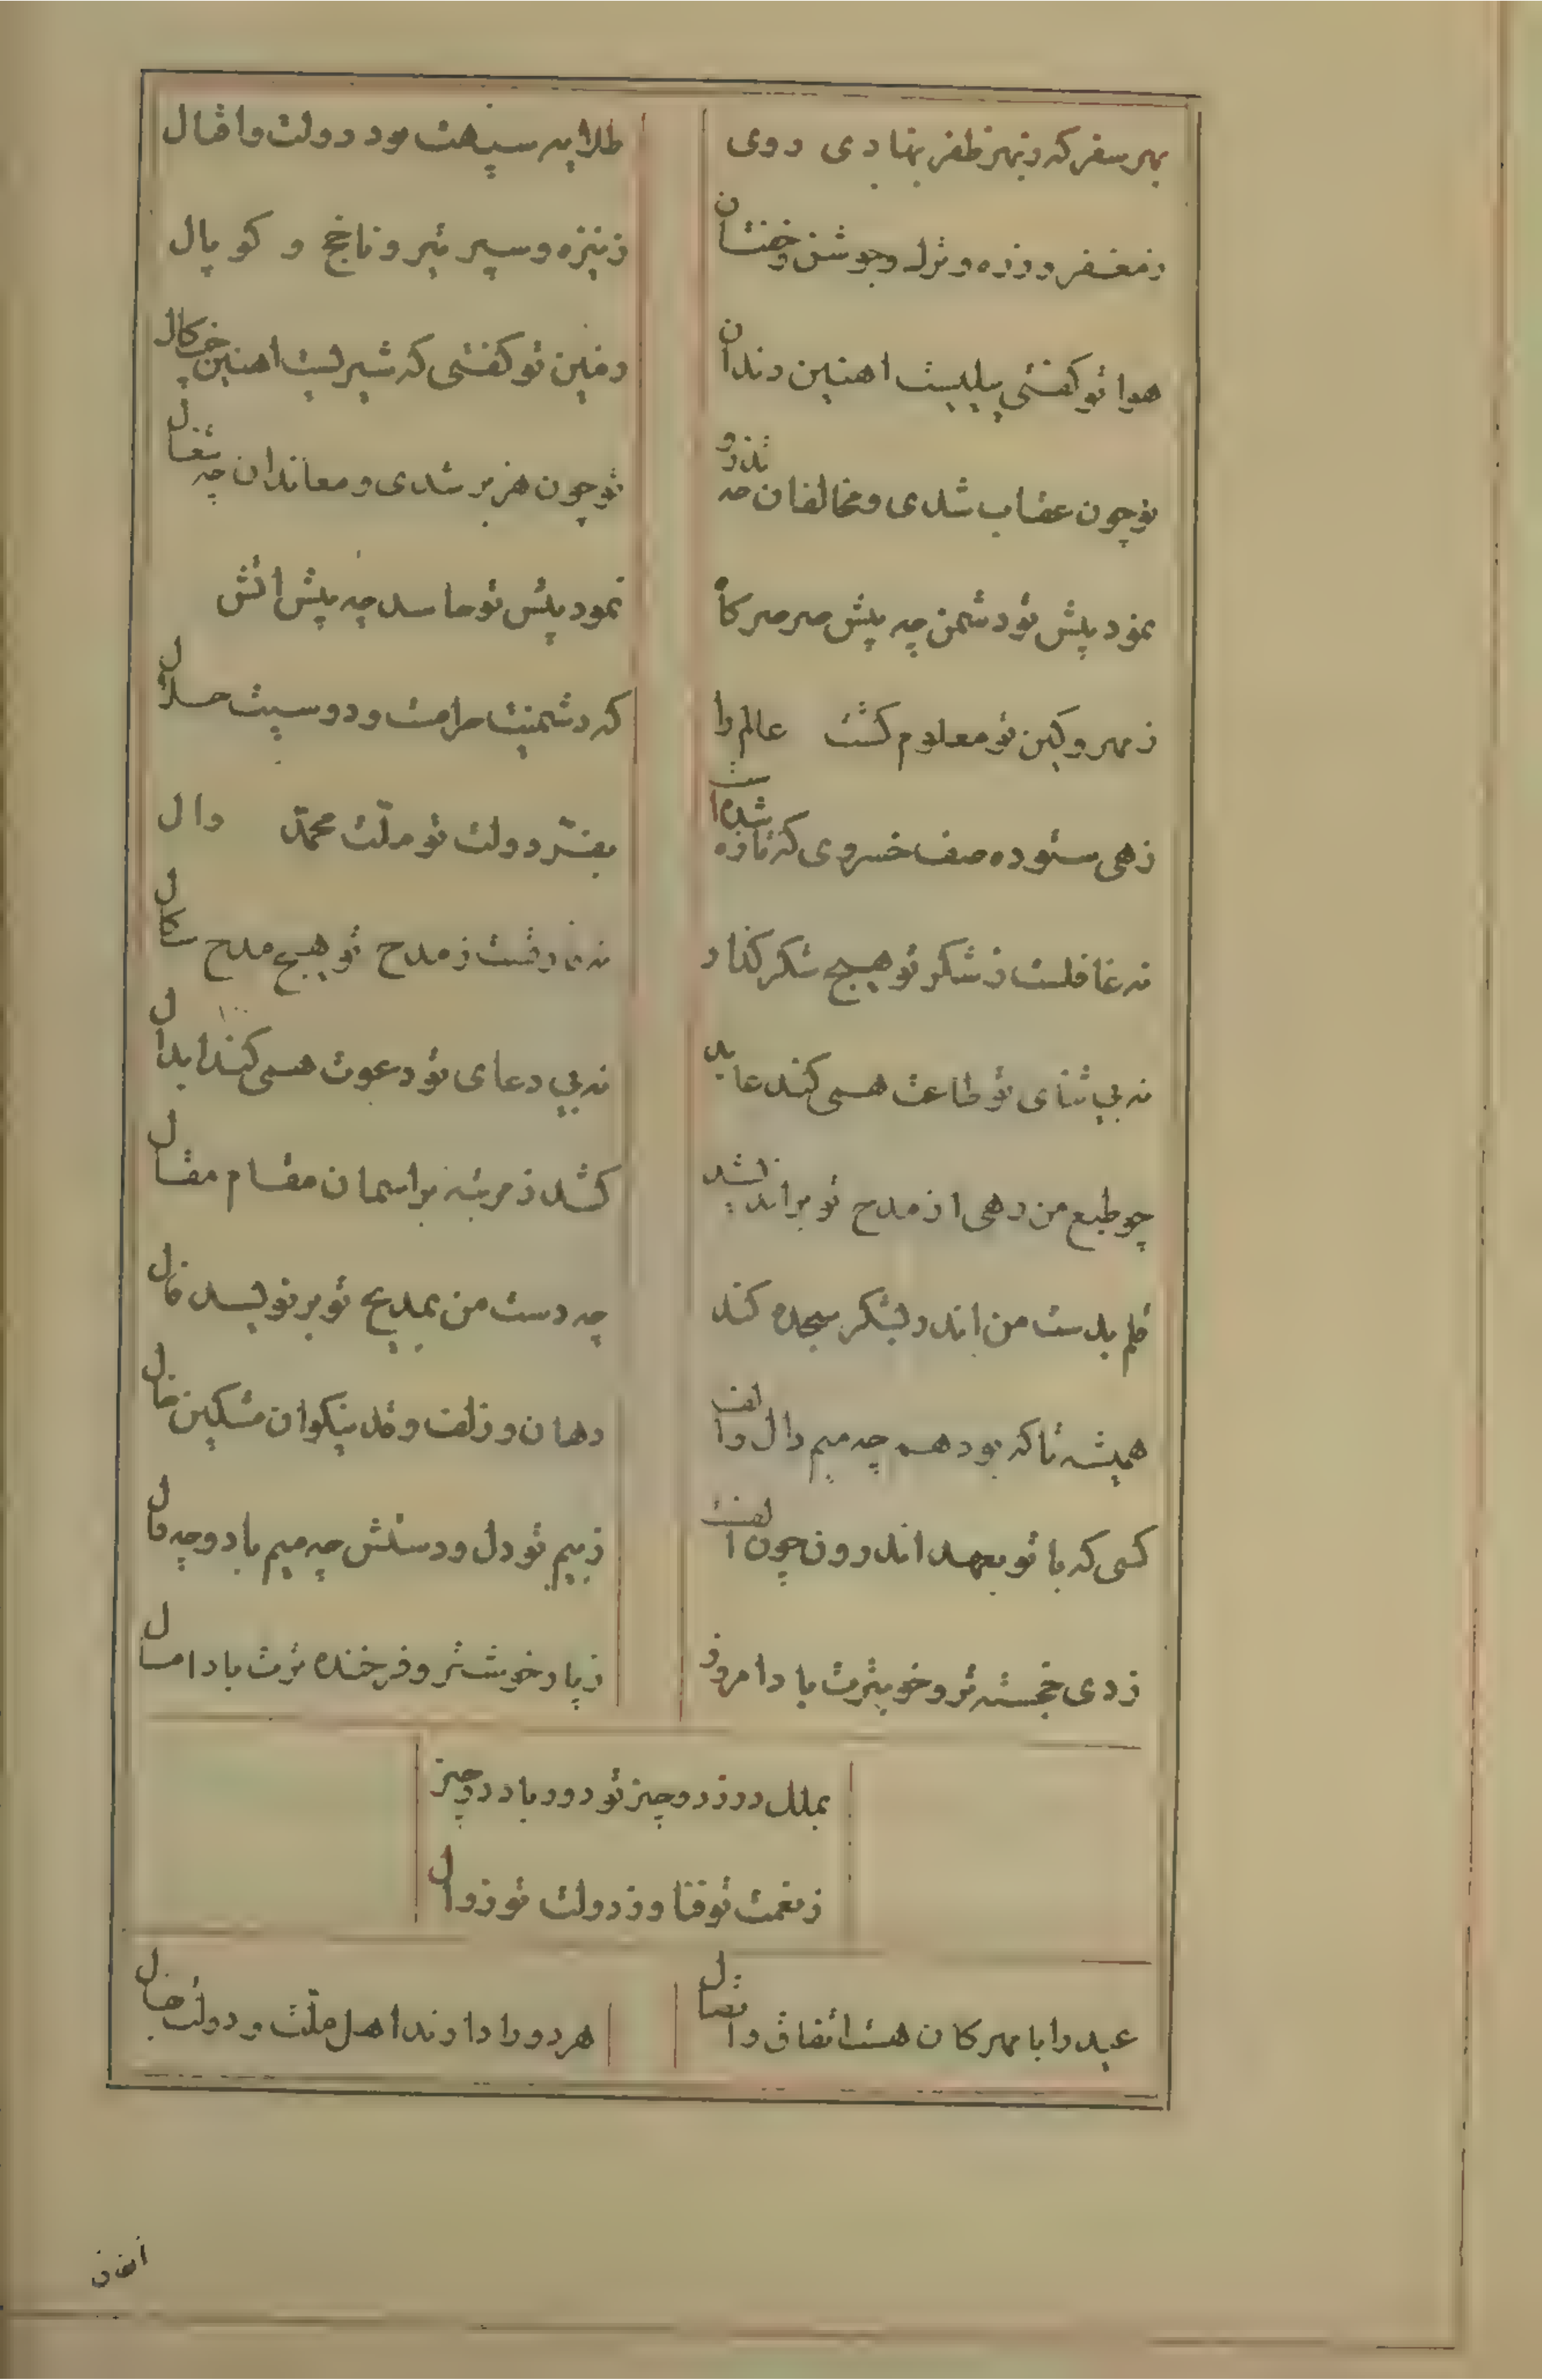 بهر سفر که ز بهر ظفر نهادی روی
طلایه سپهت بود دولت واقبال
ز مغفر و زره و ترک وجوشن وخفتان
ز نیزه و سپر تیر و ناخج و کوپال
هوا تو گفتی پیلیست اهنین دندان
زمین تو گفتی که شیریست اهنین چنکال
تو چون عقاب شدی و مخالفان چه تذرو
تو چون هزبر شدی و معاندان چه شغال
نمود پیش تو دشمن چه پیش صرصر کاه
نمود پیش تو حاسد چه پیش اتش
ز مهر و کین تو معلوم کشت عالم را
که دشمنیت حرامت و دوسیت حلال
زهی ستوده صف خسروی که تازه شده است
بفر دولت تو ملت محمد وال
نه غافلست ز شکر تو هیچ شکر کذار
نه فارقست ز مدح تو هیچ مدح سکال
نه بی ثنای تو طاعت همی کند عابد
نه بی دعای تو دعوت همی کند ابدال
چو طبع من رهی از مدح تو براندیشد
کشد ز مرتبه بر اسمان مقام مقال
قلم بدست من اندر بشکر سجده کند
چه دست من بمدیح تو بر نویسد قال
همیشه تا که بود همچه میم دال و الف
دهان و زلف و قد نیکوان مشکین خال
کسی که با تو بعهد اندرون چون الفست
ز بیم تو دل و دستش چه میم باد و چه دال
ز دی خجسته تر و خوبترت باد امروز
ز پار خوشتر و فرخنده ترت باد امسال
بملک در ز دو چیز تو دور باد دو چیز
ز نعمت تو فنا و ز دولت تو زوال
عید را با مهرکان هست اتفاق و اتصال
هر دو را دارند اهل ملت و دولت بفال
اتفاق